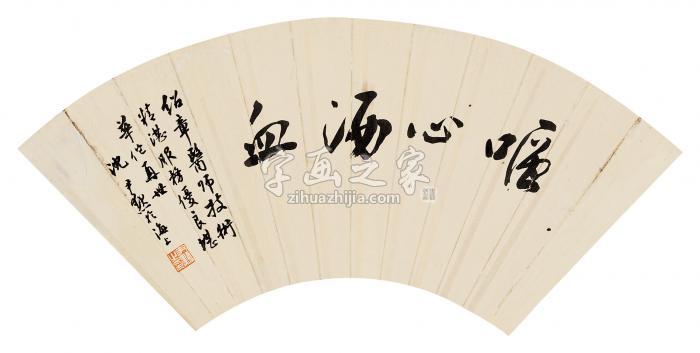 嘔心洒血
绍章醫师技術
精湛服務優良堪
華佗再世
沈尹默於海上
字画之家
zihuazhijia.com